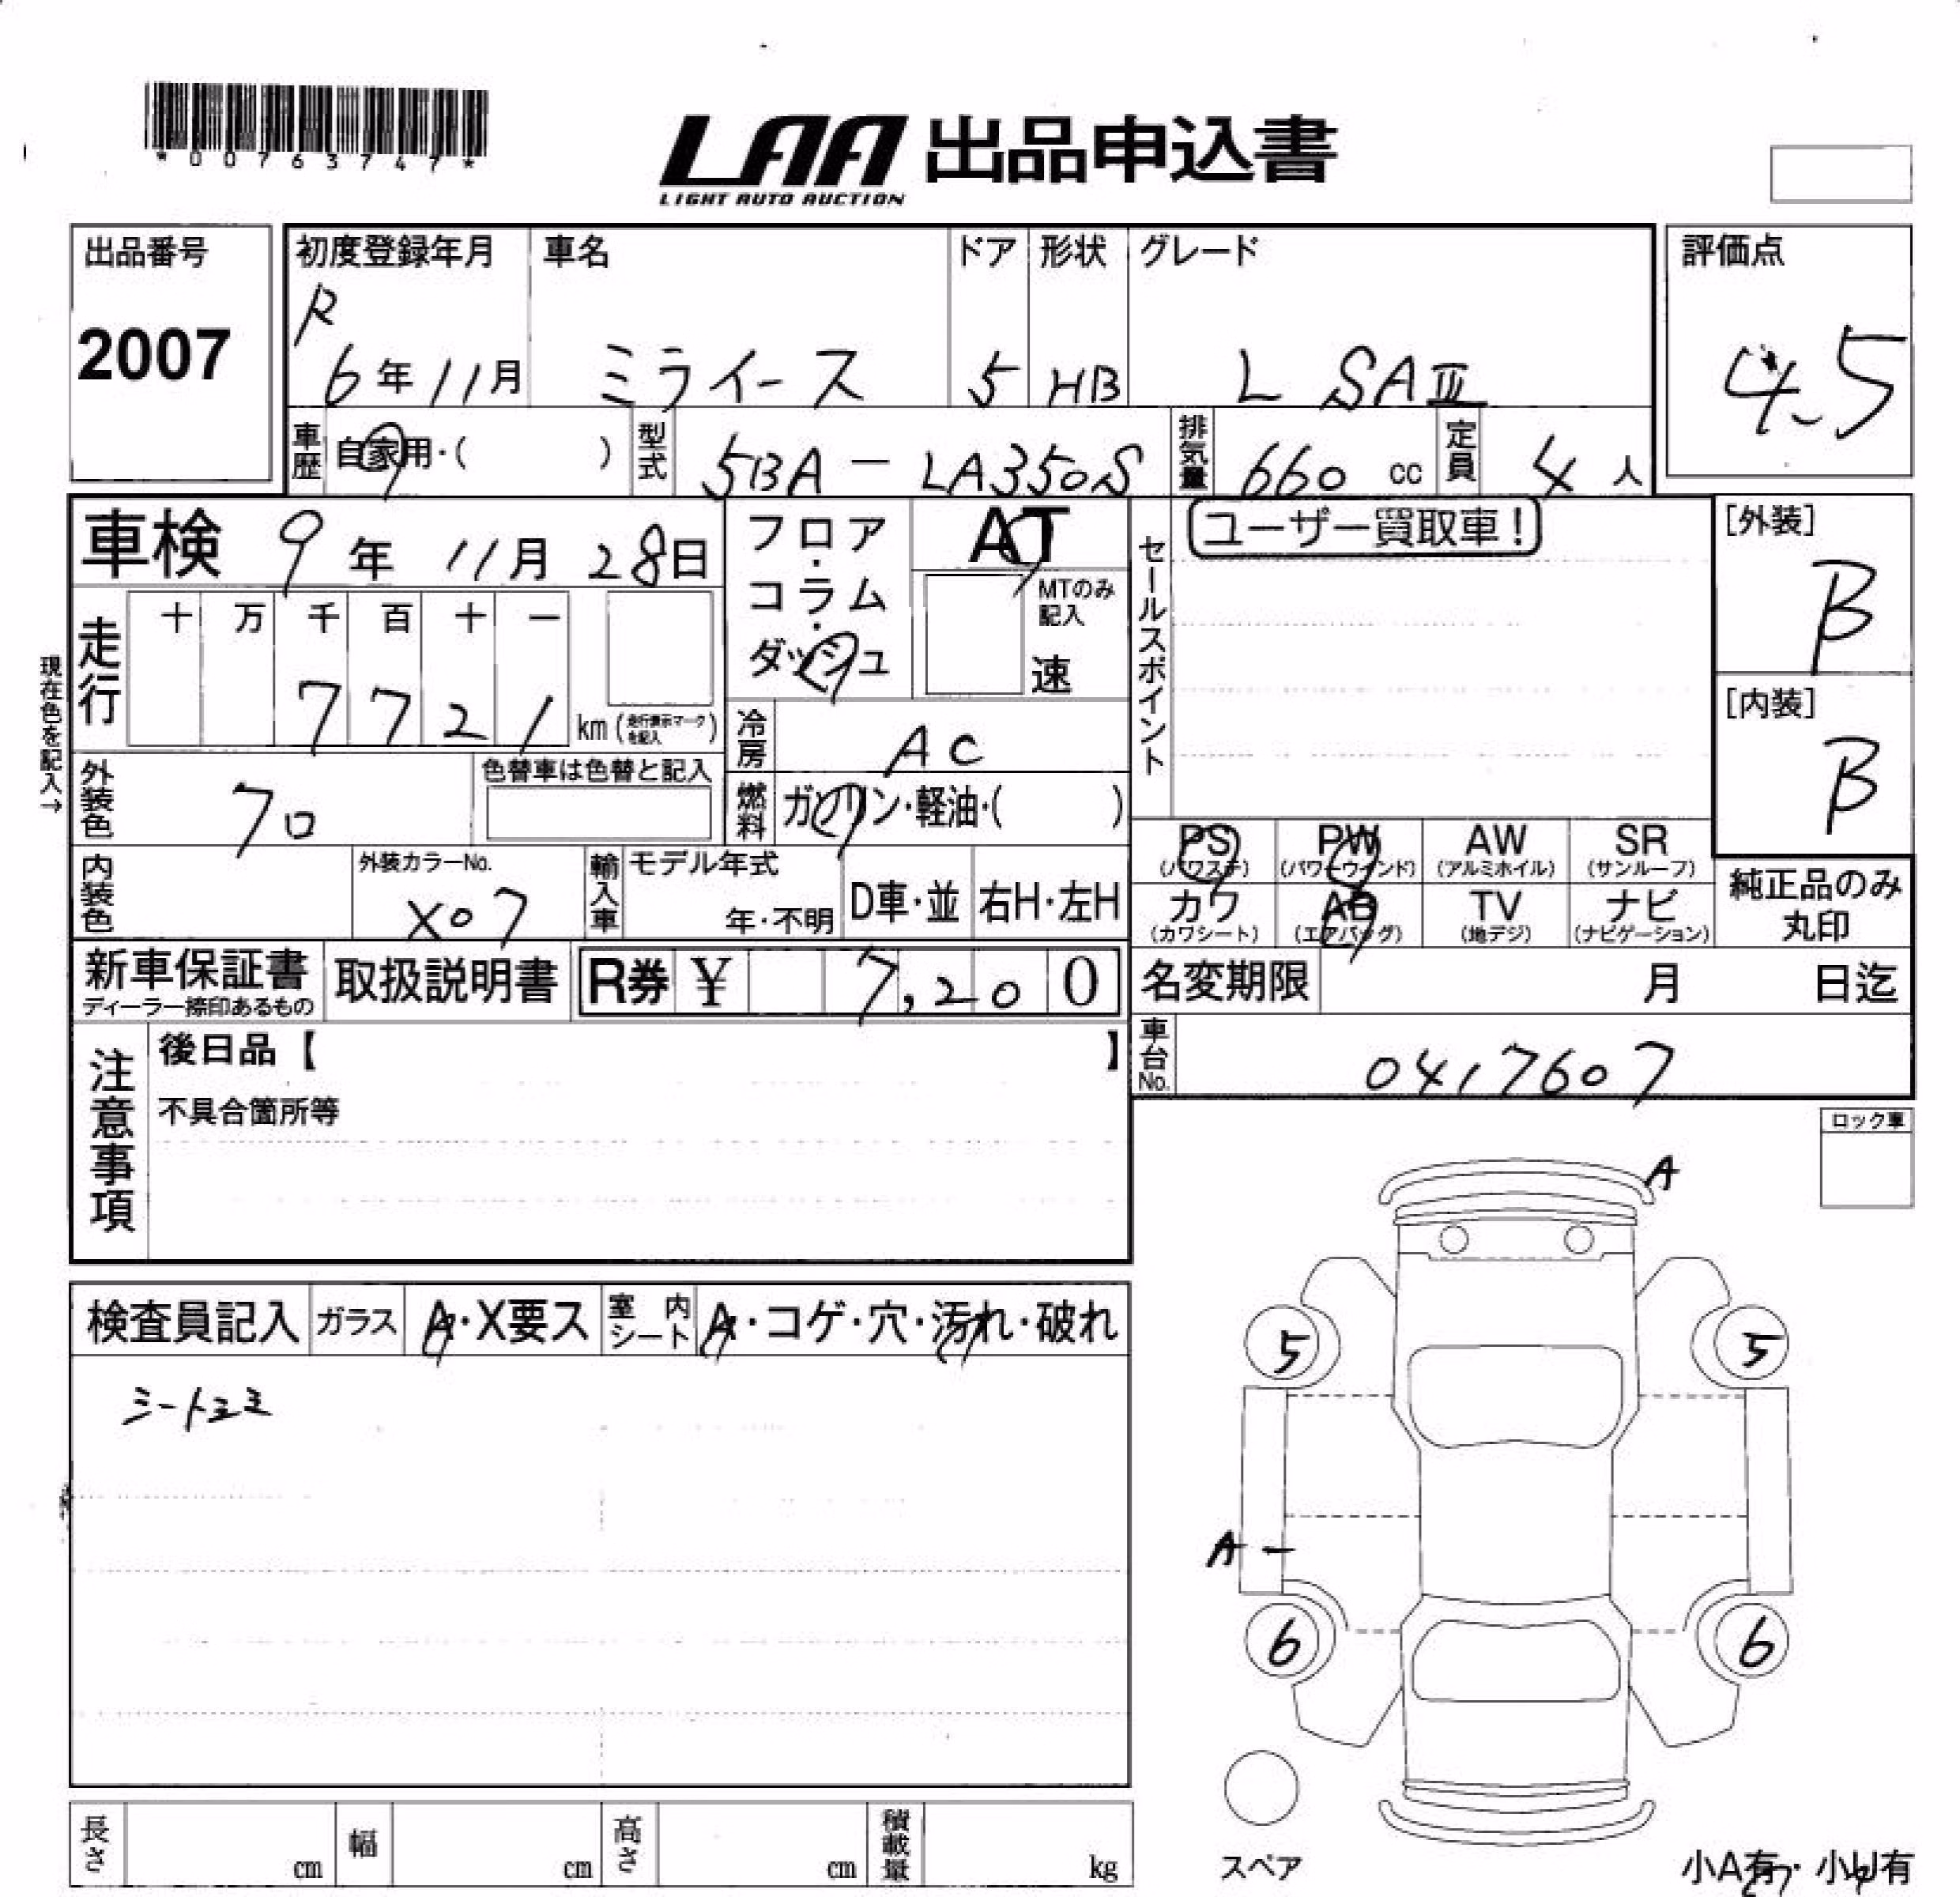 *00763747*
LAA 出品申込書
LIGHT AUTO AUCTION
出品番号
2007
初度登録年月
R
6年11月
車名
ミライース
ドア
5
形状
HB
グレード
L SAⅢ
評価点
4.5
車歴
自家用・( )
型式
5BA - LA350S
排気量
660 cc
定員
4 人
車検 9年 11月 28日
フロア・コラム・ダッシュ
AT
MTのみ記入
速
セールスポイント
ユーザー買取車!
[外装]
B
[内装]
B
現在色を記入→
走行
十 万 千 百 十 一
7 7 2 1
km (走行表示マークを記入)
冷房
AC
燃料
ガソリン・軽油・( )
外装色
クロ
色替車は色替と記入
内装色
外装カラーNo.
X07
輸入車
モデル年式
年・不明
D車・並
右H・左H
PS
(パワステ)
PW
(パワーウインド)
AW
(アルミホイル)
SR
(サンルーフ)
カワ
(カワシート)
AB
(エアバッグ)
TV
(地デジ)
ナビ
(ナビゲーション)
純正品のみ
丸印
新車保証書
ディーラー捺印あるもの
取扱説明書
R券 ¥ 7,200
名変期限 月 日迄
車台No.
0417607
注意事項
後日品【 】
不具合箇所等
ロック車
A
検査員記入
ガラス
A・X要ス
室内シート
A・コゲ・穴・汚れ・破れ
5
5
A -
6
6
スペア
小A有・小U有
長さ cm
幅 cm
高さ cm
積載量 kg